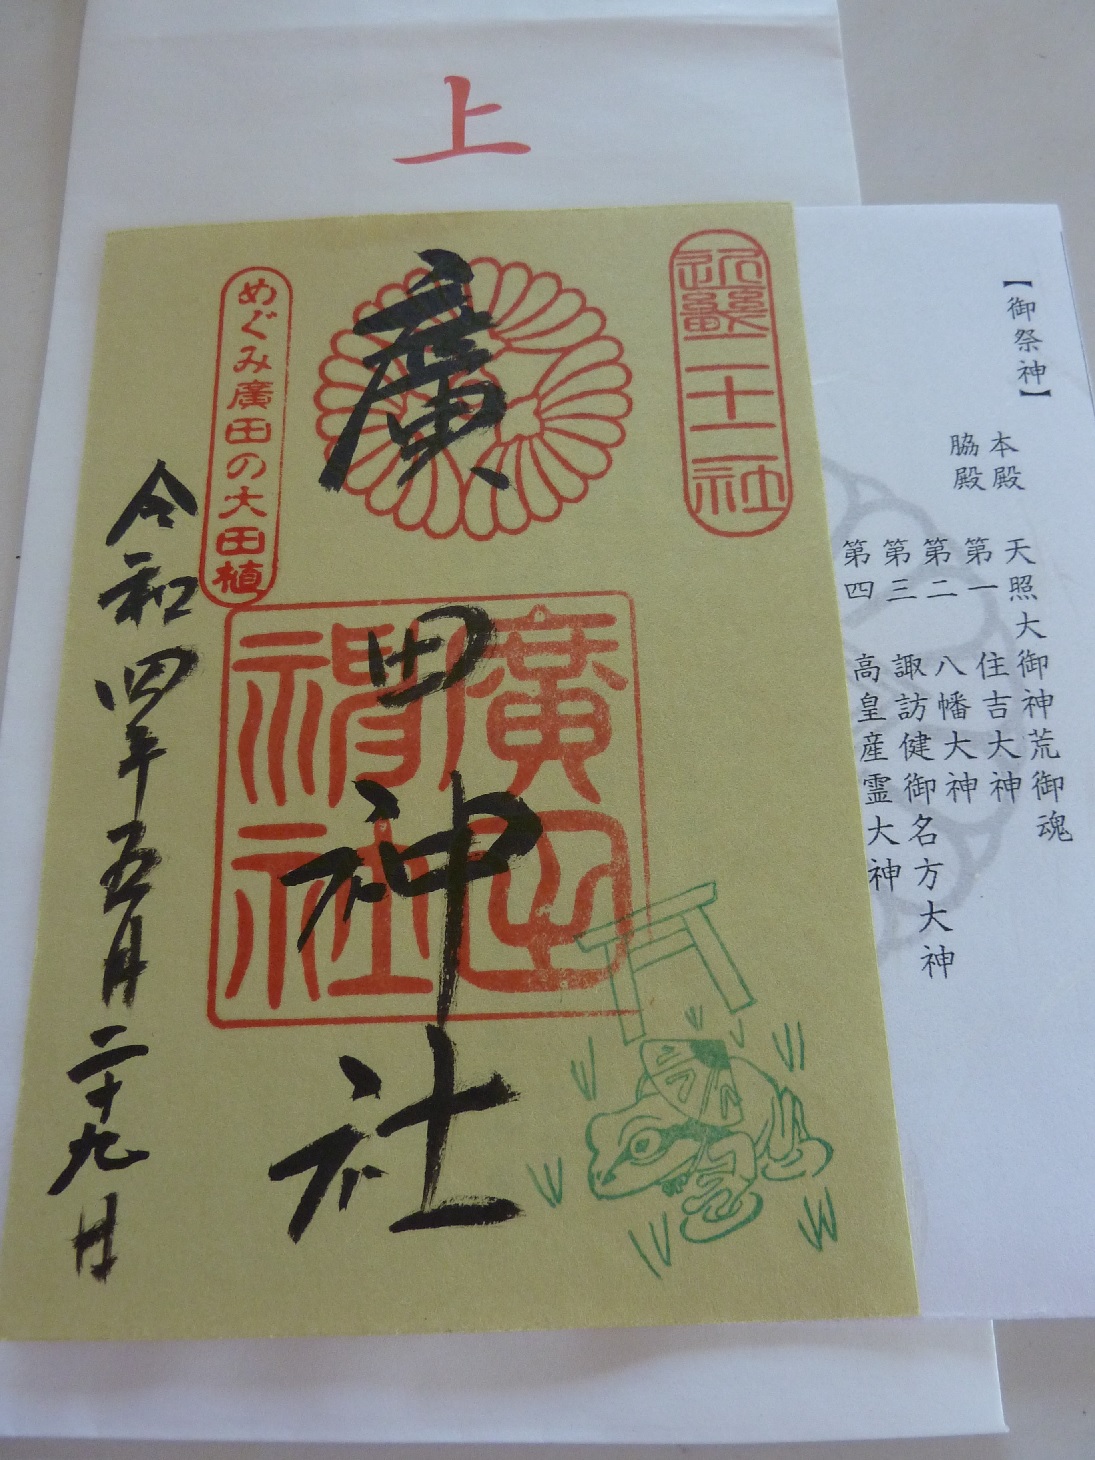 上
【御祭神】
本殿 天照大御神荒御魂
脇殿 第一 住吉大神
第二 八幡大神
第三 諏訪健御名方大神
第四 高皇産霊大神
二十二社
廣田神社
廣田神社
めぐみ廣田の大田植
令和四年五月二十九日